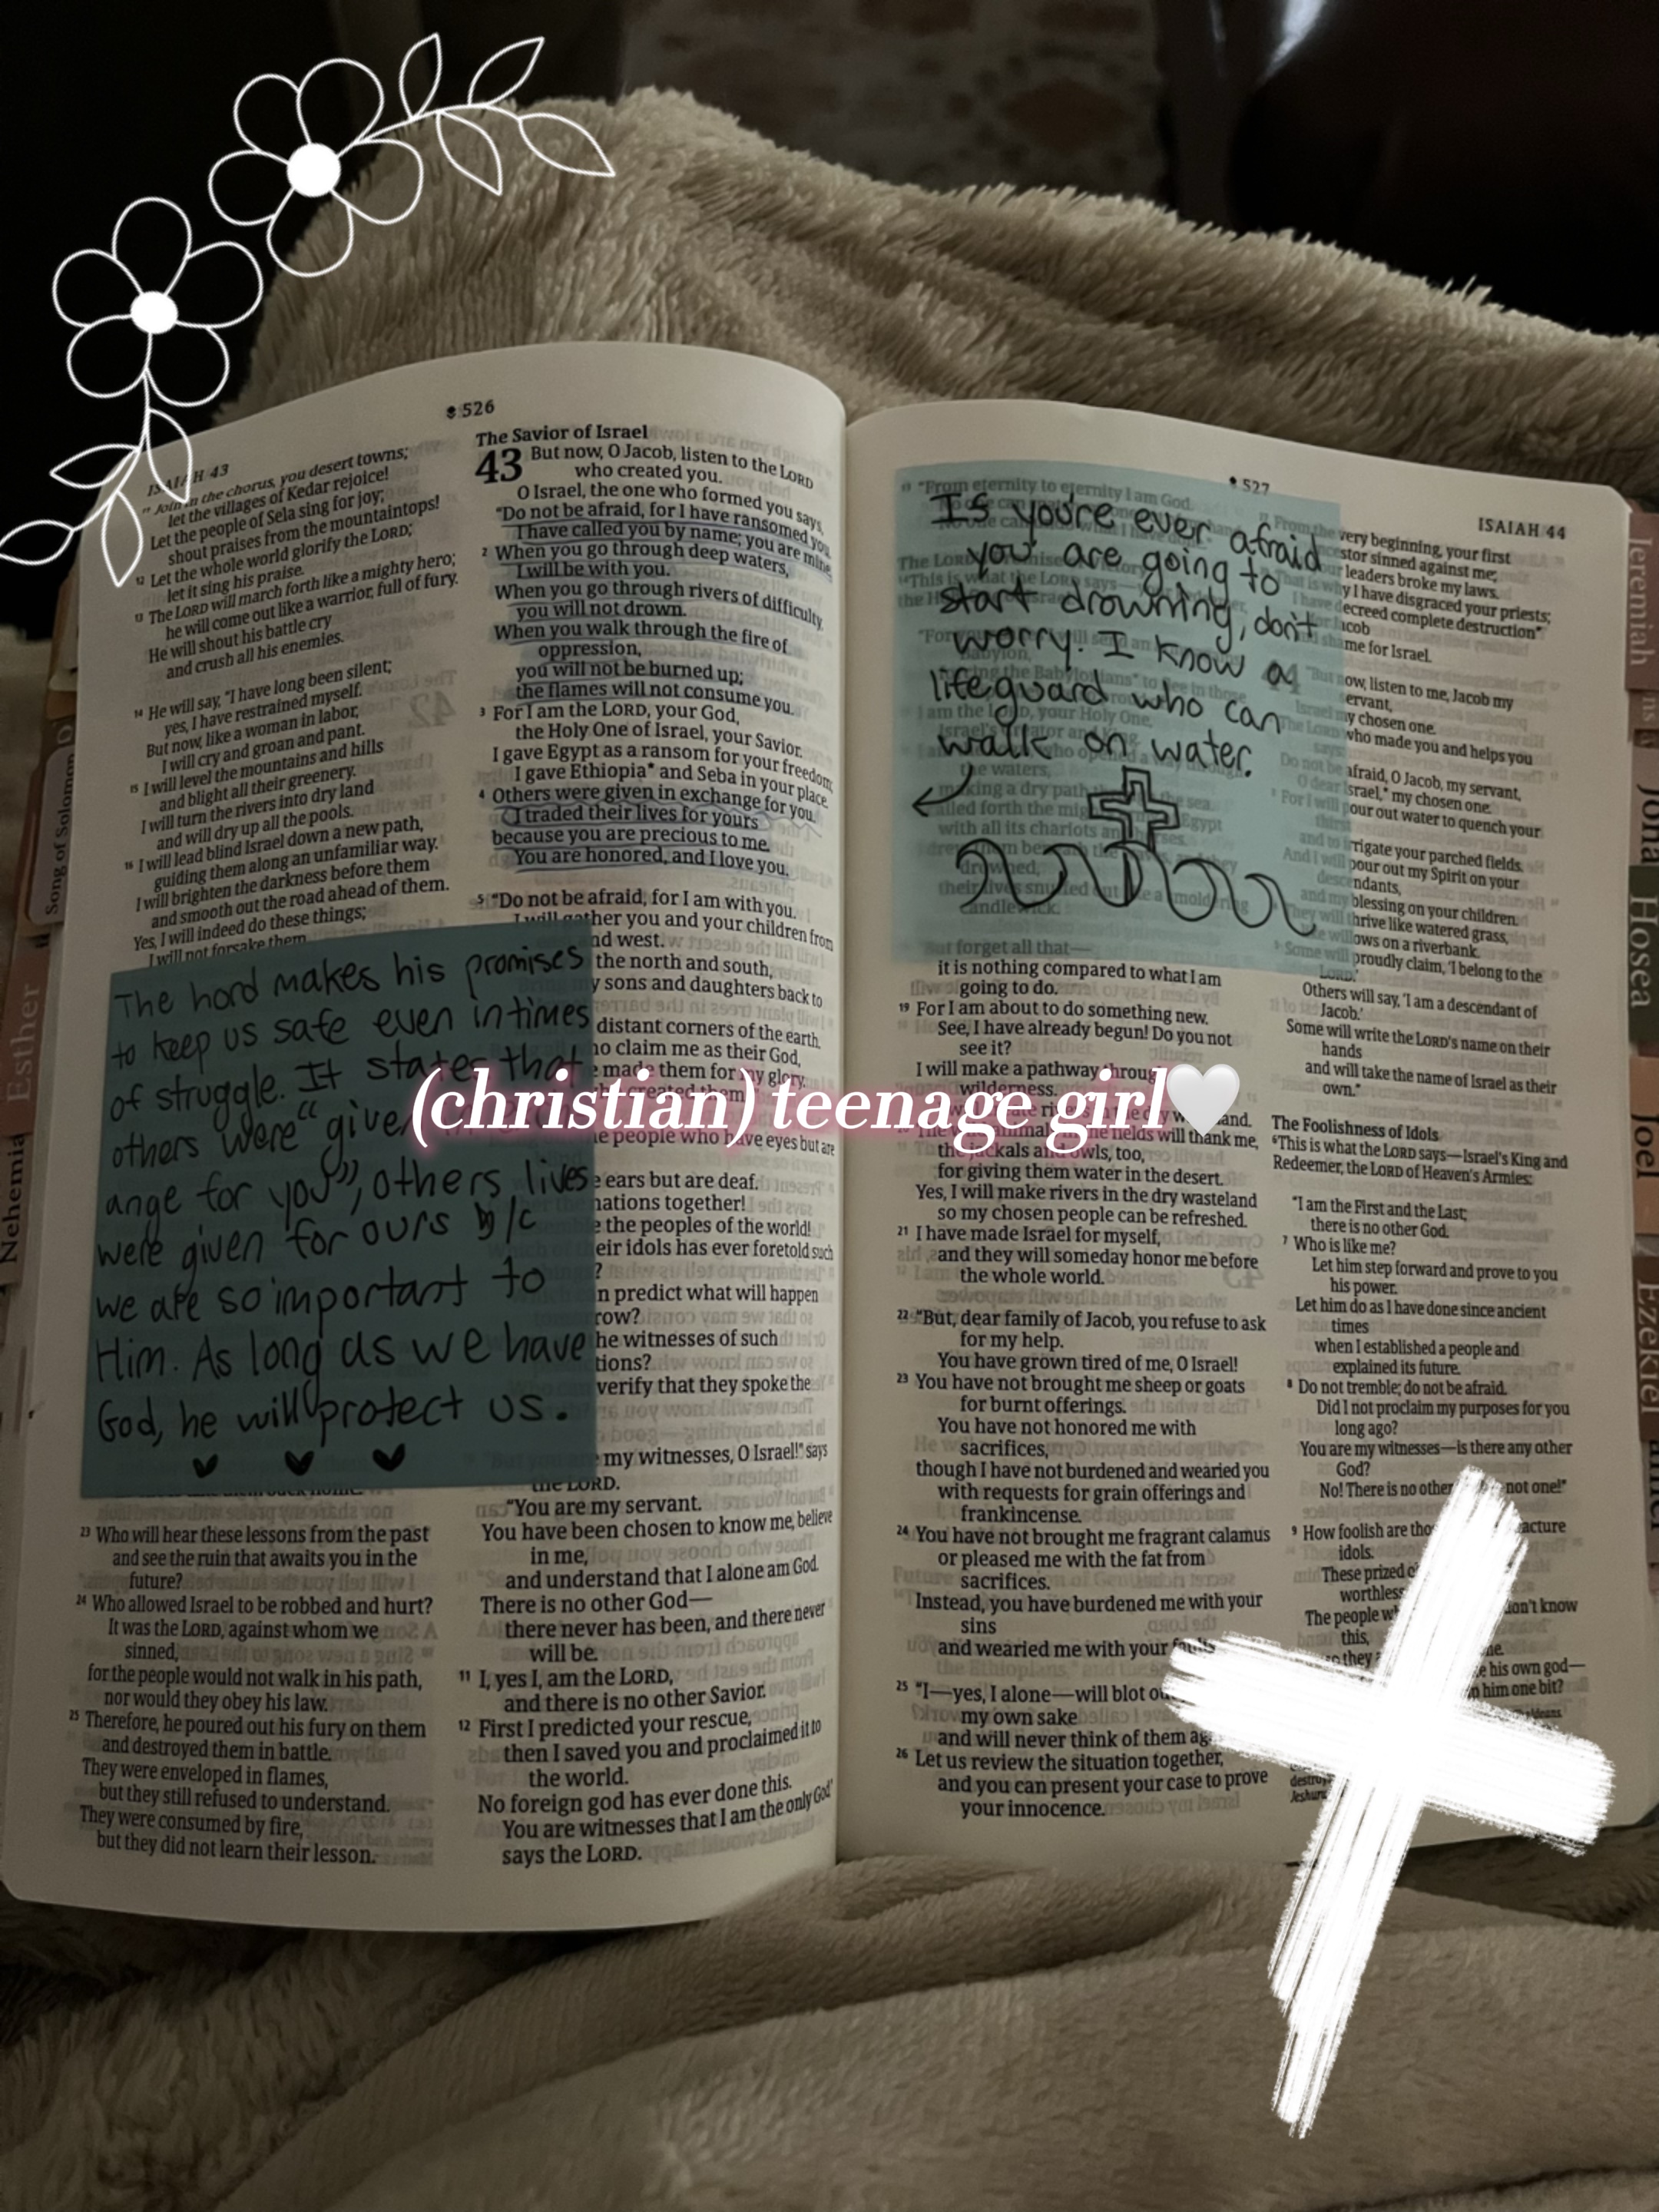 526
ISAIAH 43
Join in the chorus, you desert towns;
let the villages of Kedar rejoice!
Let the people of Sela sing for joy;
shout praises from the mountaintops!
12 Let the whole world glorify the LORD;
let it sing his praise.
13 The LORD will march forth like a mighty hero;
he will come out like a warrior, full of fury.
He will shout his battle cry
and crush all his enemies.
14 He will say, "I have long been silent;
yes, I have restrained myself.
But now, like a woman in labor,
I will cry and groan and pant.
15 I will level the mountains and hills
and blight all their greenery.
I will turn the rivers into dry land
and will dry up all the pools.
16 I will lead blind Israel down a new path,
guiding them along an unfamiliar way.
I will brighten the darkness before them
and smooth out the road ahead of them.
Yes, I will indeed do these things;
I will not forsake them
The Lord makes his promises
to keep us safe even in times
of struggle. It states that
others were "given
ange for you", others lives
were given for ours b/c
we are so important to
Him. As long as we have
God, he will protect us.
23 Who will hear these lessons from the past
and see the ruin that awaits you in the
future?
24 Who allowed Israel to be robbed and hurt?
It was the LORD, against whom we
sinned,
for the people would not walk in his path,
nor would they obey his law.
25 Therefore, he poured out his fury on them
and destroyed them in battle.
They were enveloped in flames,
but they still refused to understand.
They were consumed by fire,
but they did not learn their lesson.
The Savior of Israel
43 But now, O Jacob, listen to the LORD
who created you.
O Israel, the one who formed you says,
"Do not be afraid, for I have ransomed you.
I have called you by name; you are mine.
2 When you go through deep waters,
I will be with you.
When you go through rivers of difficulty,
you will not drown.
When you walk through the fire of
oppression,
you will not be burned up;
the flames will not consume you.
3 For I am the LORD, your God,
the Holy One of Israel, your Savior.
I gave Egypt as a ransom for your freedom;
I gave Ethiopia* and Seba in your place.
4 Others were given in exchange for you.
I traded their lives for yours
because you are precious to me.
You are honored, and I love you.
5 "Do not be afraid, for I am with you.
I will gather you and your children from
and west.
the north and south,
y sons and daughters back to
distant corners of the earth.
ho claim me as their God,
made them for my glory.
created them
e people who have eyes but are
ears but are deaf.
nations together!
the peoples of the world!
eir idols has ever foretold such
?
n predict what will happen
row?
he witnesses of such
tions?
verify that they spoke the
my witnesses, O Israel!" says
the LORD.
"You are my servant.
You have been chosen to know me, believe
in me,
and understand that I alone am God.
There is no other God—
there never has been, and there never
will be.
11 I, yes I, am the LORD,
and there is no other Savior.
12 First I predicted your rescue,
then I saved you and proclaimed it to
the world.
No foreign god has ever done this.
You are witnesses that I am the only God"
says the LORD.
(christian) teenage girl🤍
527
ISAIAH 44
"From eternity to eternity I am God.
Is you're ever afraid
you are going to
start drowning, don't
worry. I know a
lifeguard who can
walk on water.
forget all that—
it is nothing compared to what I am
going to do.
19 For I am about to do something new.
See, I have already begun! Do you not
see it?
I will make a pathway through
wilderness.
fields will thank me,
the jackals and owls, too,
for giving them water in the desert.
Yes, I will make rivers in the dry wasteland
so my chosen people can be refreshed.
21 I have made Israel for myself,
and they will someday honor me before
the whole world.
22 "But, dear family of Jacob, you refuse to ask
for my help.
You have grown tired of me, O Israel!
23 You have not brought me sheep or goats
for burnt offerings.
You have not honored me with
sacrifices,
though I have not burdened and wearied you
with requests for grain offerings and
frankincense.
24 You have not brought me fragrant calamus
or pleased me with the fat from
sacrifices.
Instead, you have burdened me with your
sins
and wearied me with your faults
25 "I—yes, I alone—will blot ou
my own sake
and will never think of them ag
26 Let us review the situation together,
and you can present your case to prove
your innocence.
From the very beginning, your first
stor sinned against me;
leaders broke my laws.
y I have disgraced your priests;
decreed complete destruction*
acob
me for Israel.
"But now, listen to me, Jacob my
servant,
my chosen one.
who made you and helps you
says:
Do not be afraid, O Jacob, my servant,
O dear Israel,* my chosen one.
For I will pour out water to quench your
thirst
and to irrigate your parched fields.
And I will pour out my Spirit on your
descendants,
and my blessing on your children.
They will thrive like watered grass,
like willows on a riverbank.
5 Some will proudly claim, 'I belong to the
LORD.'
Others will say, 'I am a descendant of
Jacob.'
Some will write the LORD's name on their
hands
and will take the name of Israel as their
own."
The Foolishness of Idols
6 This is what the LORD says—Israel's King and
Redeemer, the LORD of Heaven's Armies:
"I am the First and the Last;
there is no other God.
7 Who is like me?
Let him step forward and prove to you
his power.
Let him do as I have done since ancient
times
when I established a people and
explained its future.
8 Do not tremble; do not be afraid.
Did I not proclaim my purposes for you
long ago?
You are my witnesses—is there any other
God?
No! There is no other not one!"
9 How foolish are tho acture
idols.
These prized o
worthless
The people w don't know
this,
so they me.
his own god—
him one bit?
Song of Solomon
Esther
Nehemia
Jeremiah
Jona
Hosea
Joel
Ezekiel